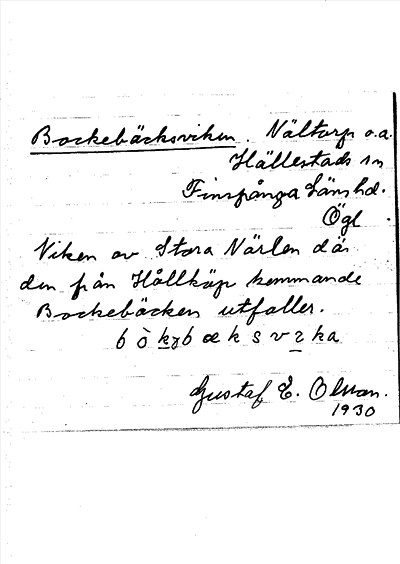 Bockebäcksviken. Nältorp o.a.
Hällestads sn
Finspånga Länshd.
Ögl.
Viken av Stora Närlen där
den från Hållköp kommande
Bockebäcken utfaller.
Gustaf E. Olsson.
1930